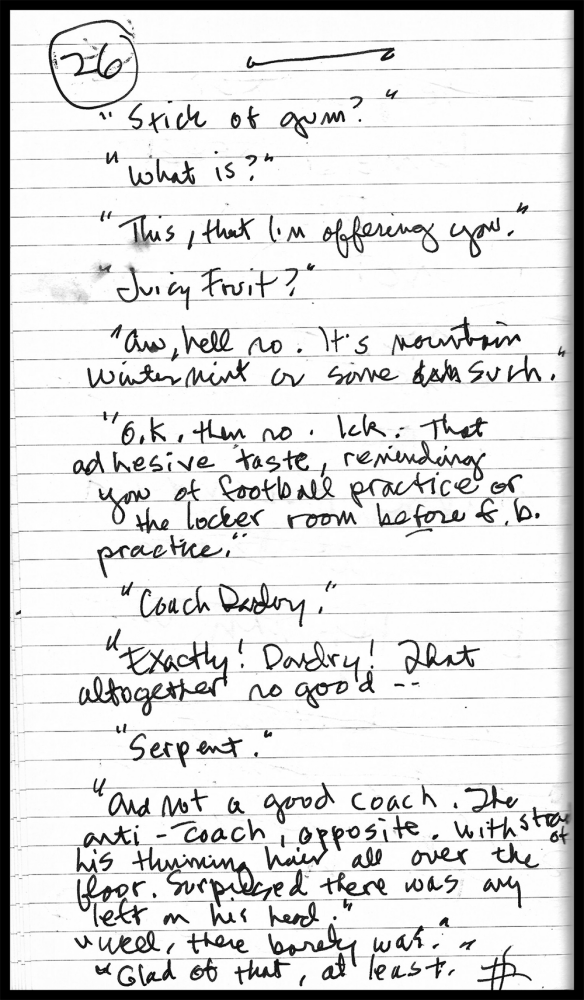 26
"Stick of gum?"
"What is?"
"This, that I'm offering you."
"Juicy Fruit?"
"Aw, hell no. It's mountain
winter mint or some such."
"O.K. then no. Ick. That
adhesive taste, reminding
you of football practice or
the locker room before f.b.
practice."
"Coach Dardry."
"Exactly! Dardry! That
altogether no good --
"Serpent."
"And not a good coach. The
anti-coach, opposite. With
of
his thinning hair all over the
floor. Surprised there was any
left on his head."
"Well, there barely was."
"Glad of that, at least.